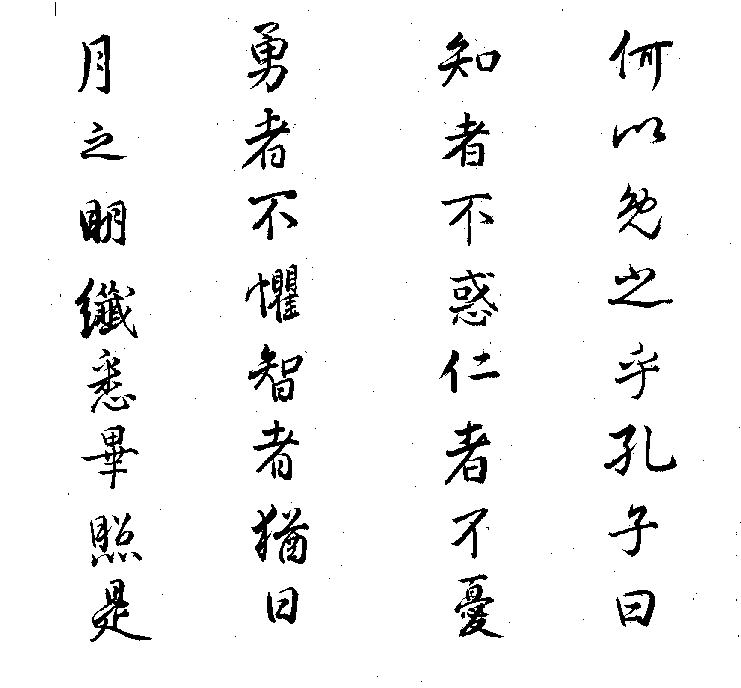 何以免之乎孔子曰
知者不惑仁者不憂
勇者不懼智者猶日
月之明纖悉畢照是